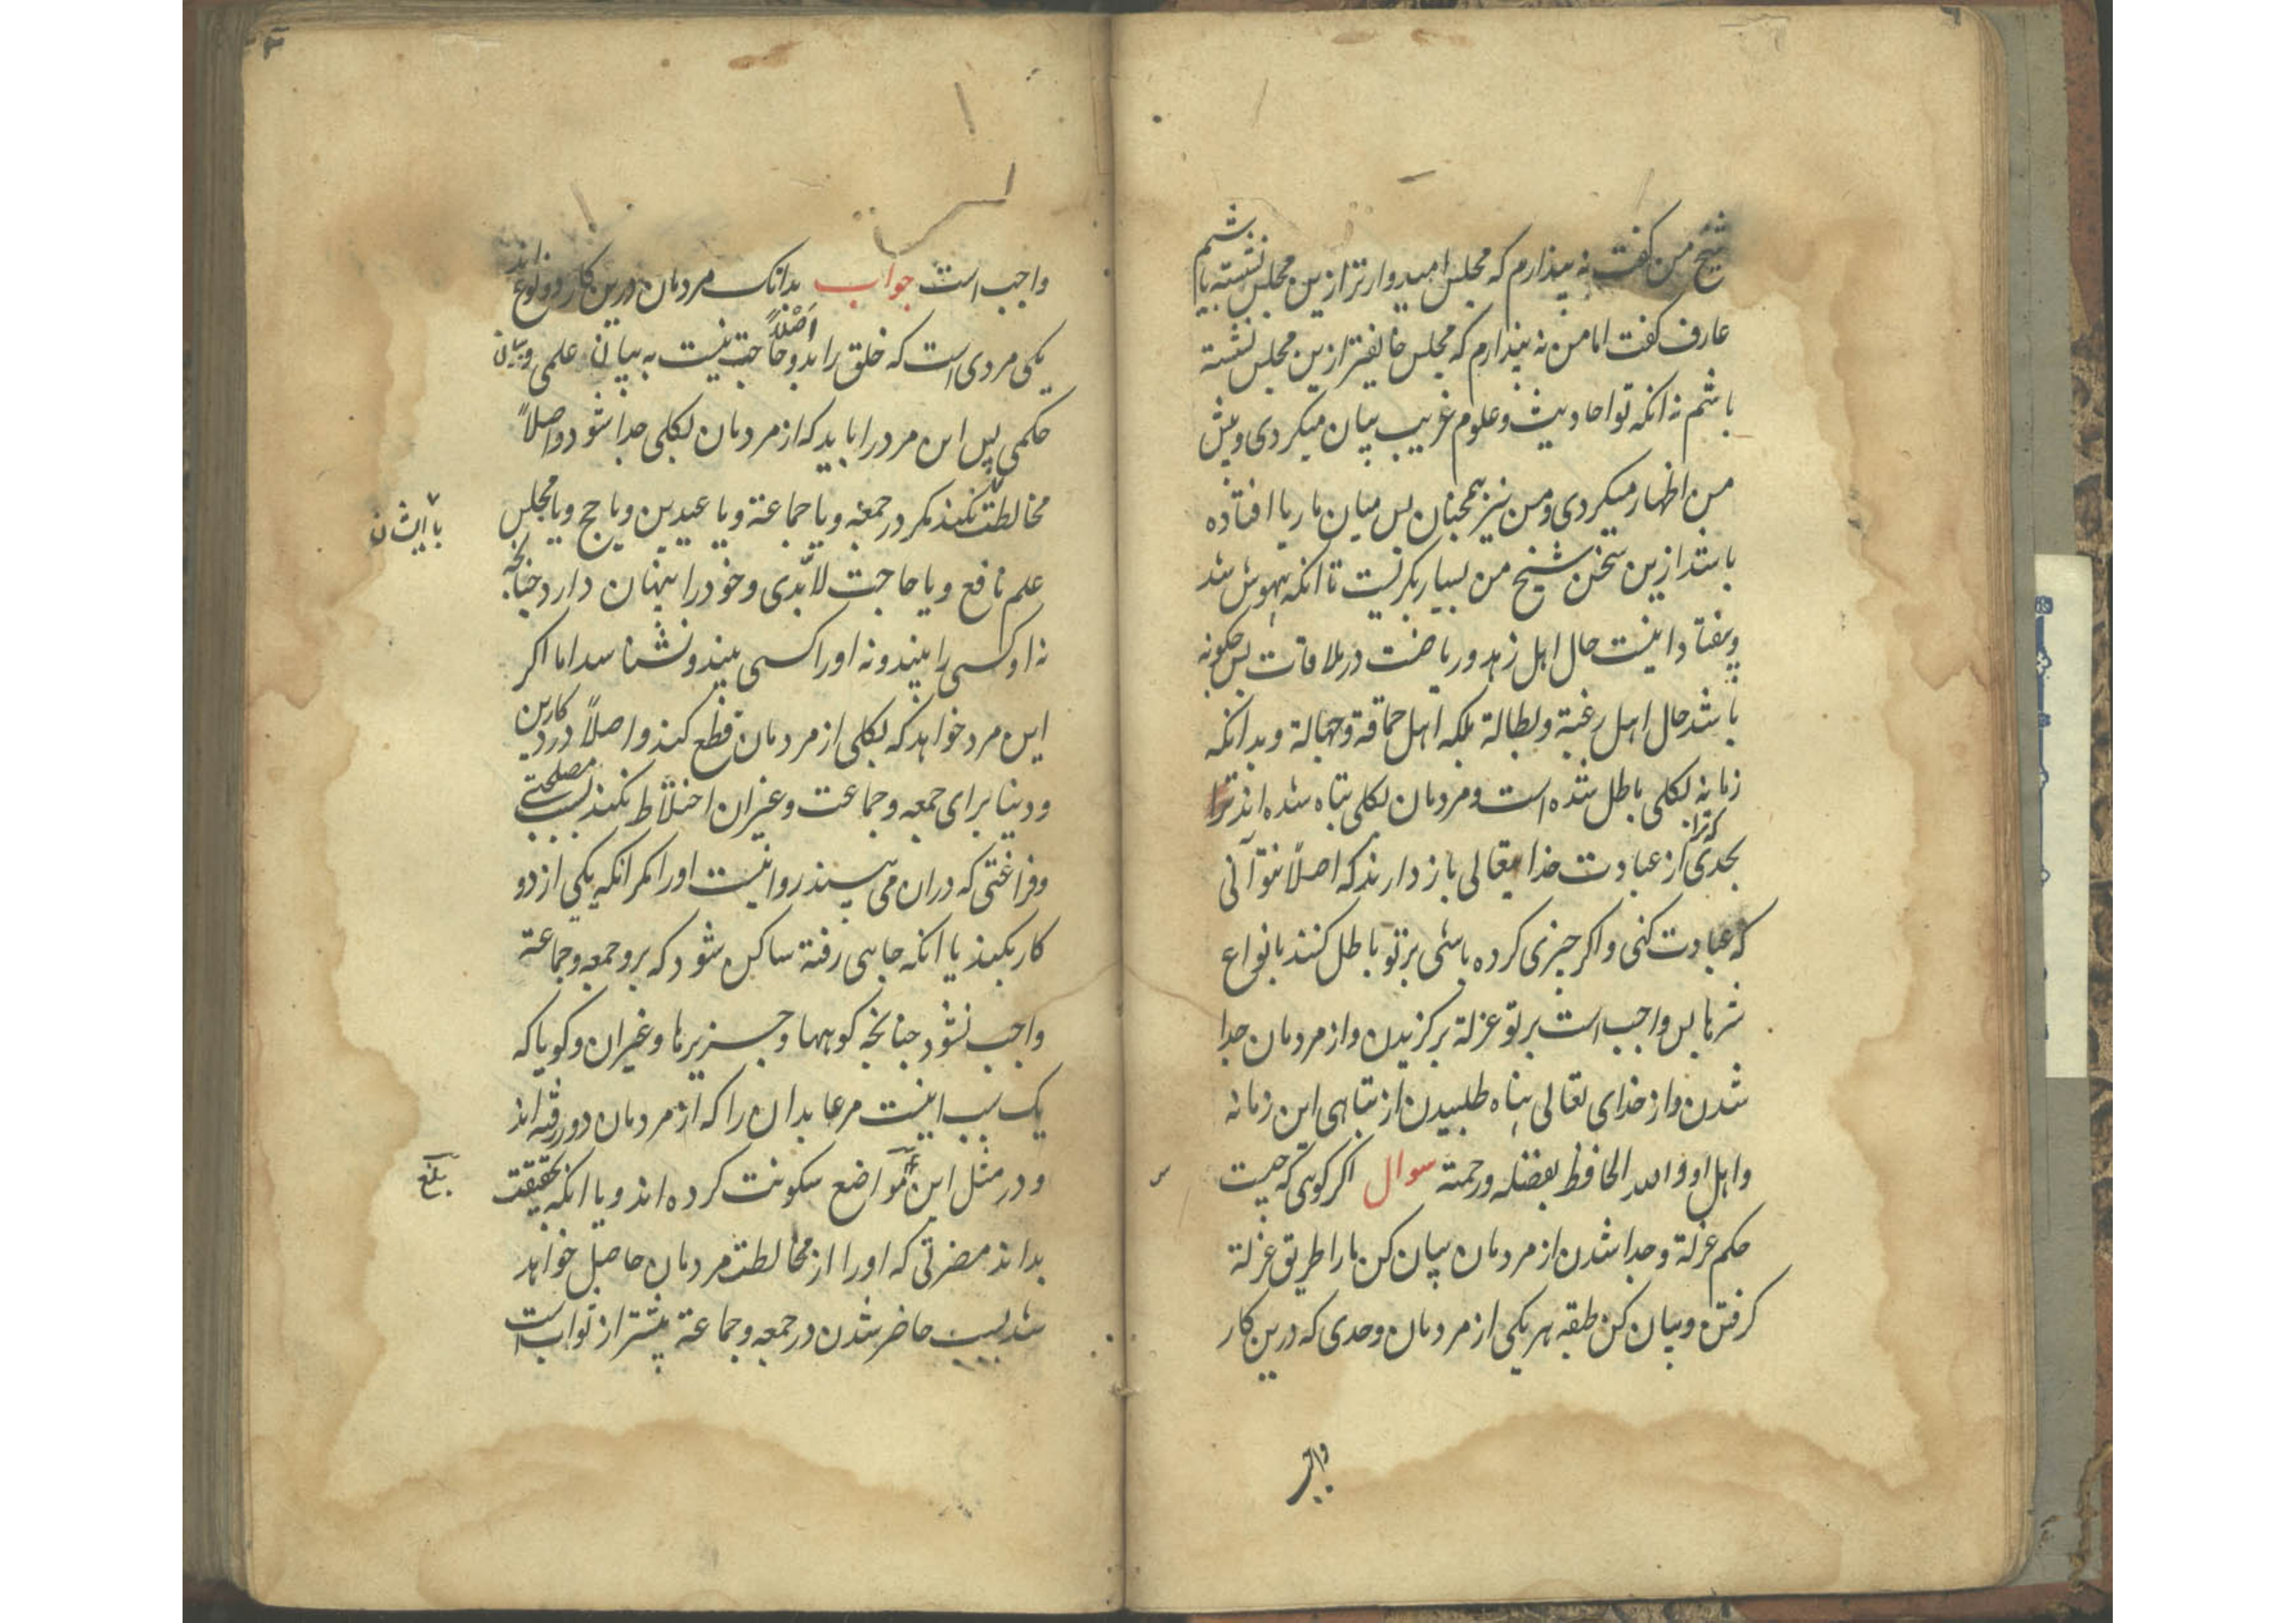 شیخ من کفت نه پندارم که مجلس امیدوارتر ازین مجلس نشسته باشم
عارف کفت اما من نه پندارم که مجلس خایفتر ازین مجلس نشسته
باشم نه انکه تو احادیث و علوم غریب بیان میکردی و پیش
من اظهار میکردی و من نیز همچنان پس میان ما ریا افتاده
باشد ازین سخن شیخ من بسیار بکریست تا انکه بیهوش شد
و بیفتاد اینست حال اهل زهد و ریاضت در ملاقات پس چکونه
باشد حال اهل رغبة و بطالة بلکه اهل حماقة و جهالة و بدانکه
زمانه بکلی باطل شده است و مردمان بکلی تباه شده اند ترا
بحدی که ترا از عبادت خدایتعالی باز دارند که اصلاً نتوانی
که عبادت کنی و اکر چیزی کرده باشی بر تو باطل کنند بانواع
شرها پس واجب است بر تو عزلة برکزیدن و از مردمان جدا
شدن و از خدای تعالی پناه طلبیدن از تباهی این زمانه
و اهل او و الله الحافظ بفضله و رحمته سوال اکر کویی که چیست
حکم عزلة و جدا شدن از مردمان بیان کن ما را طریق عزلة
کرفتن و بیان کن طبقه هر یکی از مردمان و حدی که درین کار
واجب است جواب بدانک مردمان درین کار دو نوع اند
یکی مردی است که خلق را بدو حاجت نیست اصلاً به بیان علمی و بیان
حکمی پس این مرد را باید که از مردمان بکلی جدا شود و اصلاً
مخالطت نکند مکر در جمعه و یا جماعة و یا عیدین و یا حج و یا مجلس
با ایشان
علم نافع و یا حاجت لابدی و خود را پنهان دارد چنانچه
نه او کسی را بیند و نه او را کسی بیند و نشناسد اما اکر
این مرد خواهد که بکلی از مردمان قطع کند و اصلاً در کار دین
و دنیا برای جمعه و جماعت و غیر ان اختلاط نکند بسبب مصلحتی
و فراغتی که دران می بیند روا نیست او را مکر انکه یکی از دو
کار بکند یا انکه جایی رفته ساکن شود که برو جمعه و جماعة
واجب نشود چنانچه کوهها و جزیرها و غیر ان و کویا که
یک سبب اینست مر عابدان را که از مردمان دور رفته اند
و در مثل این مواضع سکونت کرده اند و یا انکه بحقیقت
بلغ
بداند مضرتی که او را از مخالطت مردمان حاصل خواهد
شد بسبب حاضر شدن در جمعه و جماعة بیشتر از ثواب است